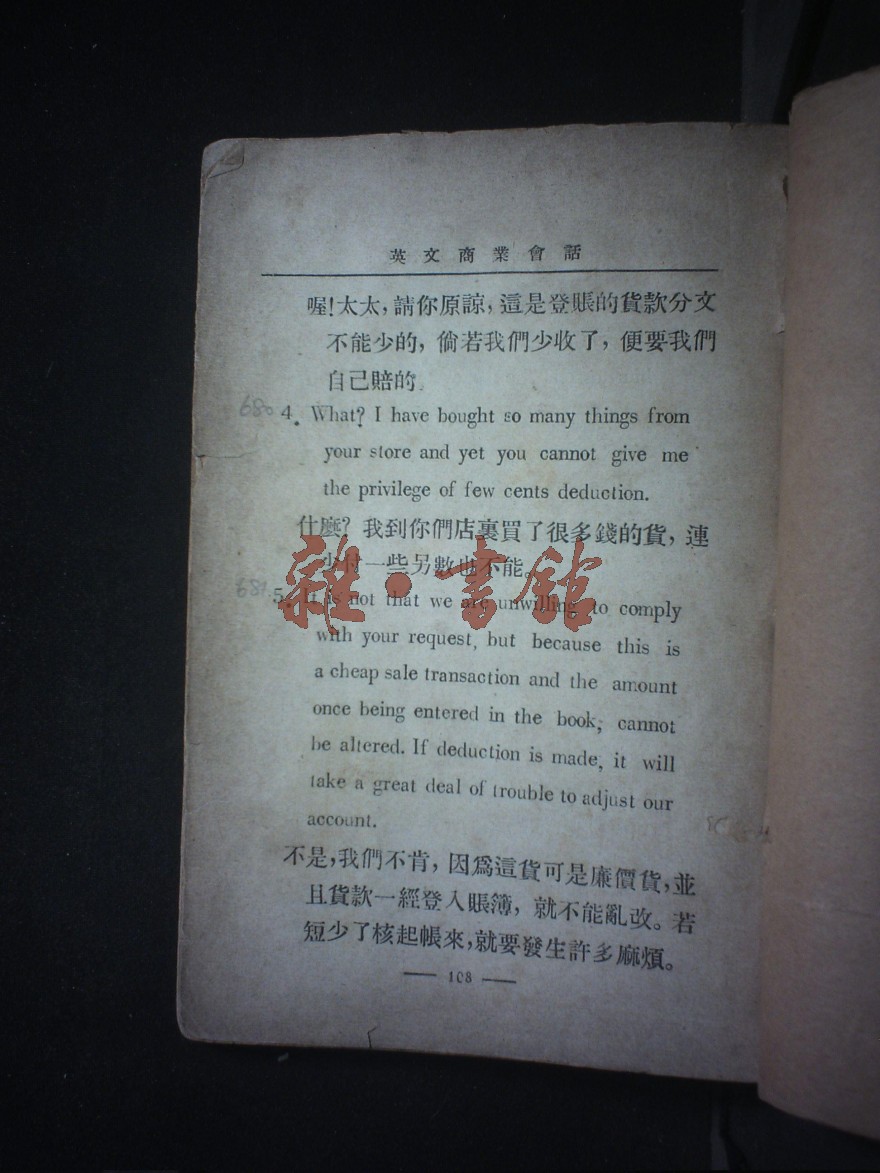 英文商業會話
喔!太太,請你原諒,這是登賬的貨款分文
不能少的,倘若我們少收了,便要我們
自己賠的.
680 4. What? I have bought so many things from
your store and yet you cannot give me
the privilege of few cents deduction.
什麼?我到你們店裏買了很多錢的貨,連
少付一些另數也不能。
雜·書館
681 5. It is not that we are unwilling to comply
with your request, but because this is
a cheap sale transaction and the amount
once being entered in the book, cannot
be altered. If deduction is made, it will
take a great deal of trouble to adjust our
account.
不是,我們不肯,因爲這貨可是廉價貨,並
且貨款一經登入賬簿,就不能亂改。若
短少了核起帳來,就要發生許多麻煩。
— 108 —